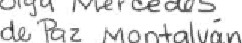 Olga Mercedes
de Paz Montalván